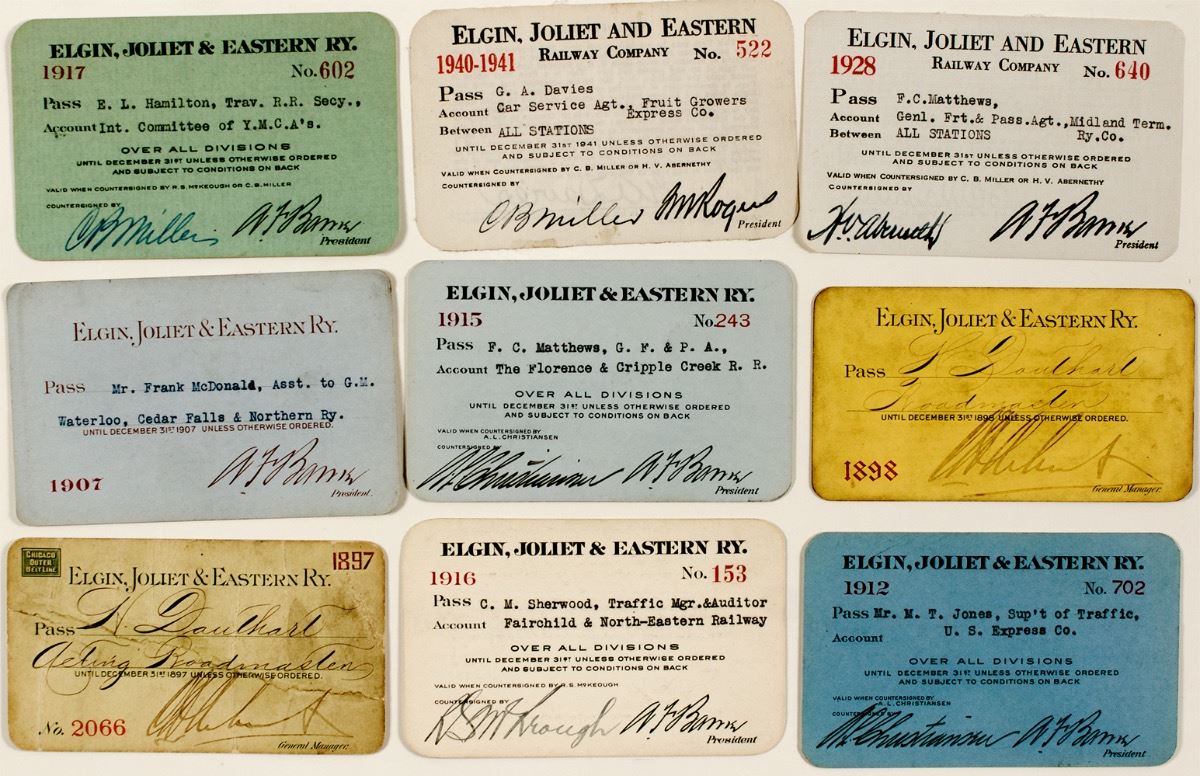 ELGIN, JOLIET & EASTERN RY.
1917 No. 602
Pass E. L. Hamilton, Trav. R.R. Secy.,
Account Int. Committee of Y.M.C.A's.
OVER ALL DIVISIONS
UNTIL DECEMBER 31ST UNLESS OTHERWISE ORDERED
AND SUBJECT TO CONDITIONS ON BACK
VALID WHEN COUNTERSIGNED BY R.S. McKEOUGH OR C.B. MILLER
COUNTERSIGNED BY
CB Miller A F Banks
President
ELGIN, JOLIET AND EASTERN
1940-1941 RAILWAY COMPANY No. 522
Pass G. A. Davies
Account Car Service Agt., Fruit Growers
Express Co.
Between ALL STATIONS
UNTIL DECEMBER 31ST 1941 UNLESS OTHERWISE ORDERED
AND SUBJECT TO CONDITIONS ON BACK
VALID WHEN COUNTERSIGNED BY C. B. MILLER OR H. V. ABERNETHY
COUNTERSIGNED BY
CB Miller Rogers
President
ELGIN, JOLIET AND EASTERN
1928 RAILWAY COMPANY No. 640
Pass F.C.Matthews,
Account Genl. Frt.& Pass.Agt.,Midland Term.
Between ALL STATIONS Ry.Co.
UNTIL DECEMBER 31ST UNLESS OTHERWISE ORDERED
AND SUBJECT TO CONDITIONS ON BACK
VALID WHEN COUNTERSIGNED BY C. B. MILLER OR H. V. ABERNETHY
COUNTERSIGNED BY
H.V. Abernethy A F Banks
President
ELGIN, JOLIET & EASTERN RY.
Pass Mr. Frank McDonald, Asst. to G.M.
Waterloo, Cedar Falls & Northern Ry.
UNTIL DECEMBER 31ST 1907 UNLESS OTHERWISE ORDERED.
1907 A F Banks
President.
ELGIN, JOLIET & EASTERN RY.
1915 No. 243
Pass F. C. Matthews, G. F. & P. A.,
Account The Florence & Cripple Creek R. R.
OVER ALL DIVISIONS
UNTIL DECEMBER 31ST UNLESS OTHERWISE ORDERED
AND SUBJECT TO CONDITIONS ON BACK
VALID WHEN COUNTERSIGNED BY
A.L. CHRISTIANSEN
COUNTERSIGNED BY
A L Christiansen A F Banks
President
ELGIN, JOLIET & EASTERN RY.
Pass Douthart
Roadmaster
UNTIL DECEMBER 31ST 1898 UNLESS OTHERWISE ORDERED.
1898
General Manager.
CHICAGO
OUTER
BELT LINE
1897
ELGIN, JOLIET & EASTERN RY.
Pass Douthart
Acting Roadmaster
UNTIL DECEMBER 31ST 1897 UNLESS OTHERWISE ORDERED.
No. 2066
General Manager.
ELGIN, JOLIET & EASTERN RY.
1916 No. 153
Pass C. M. Sherwood, Traffic Mgr.&Auditor
Account Fairchild & North-Eastern Railway
OVER ALL DIVISIONS
UNTIL DECEMBER 31ST UNLESS OTHERWISE ORDERED
AND SUBJECT TO CONDITIONS ON BACK
VALID WHEN COUNTERSIGNED BY R.S. McKEOUGH
COUNTERSIGNED BY
R S McKeough A F Banks
President
ELGIN, JOLIET & EASTERN RY.
1912 No. 702
Pass Mr. M. T. Jones, Sup't of Traffic,
Account U. S. Express Co.
OVER ALL DIVISIONS
UNTIL DECEMBER 31ST UNLESS OTHERWISE ORDERED
AND SUBJECT TO CONDITIONS ON BACK
VALID WHEN COUNTERSIGNED BY
A.L. CHRISTIANSEN
COUNTERSIGNED BY
A L Christiansen A F Banks
President